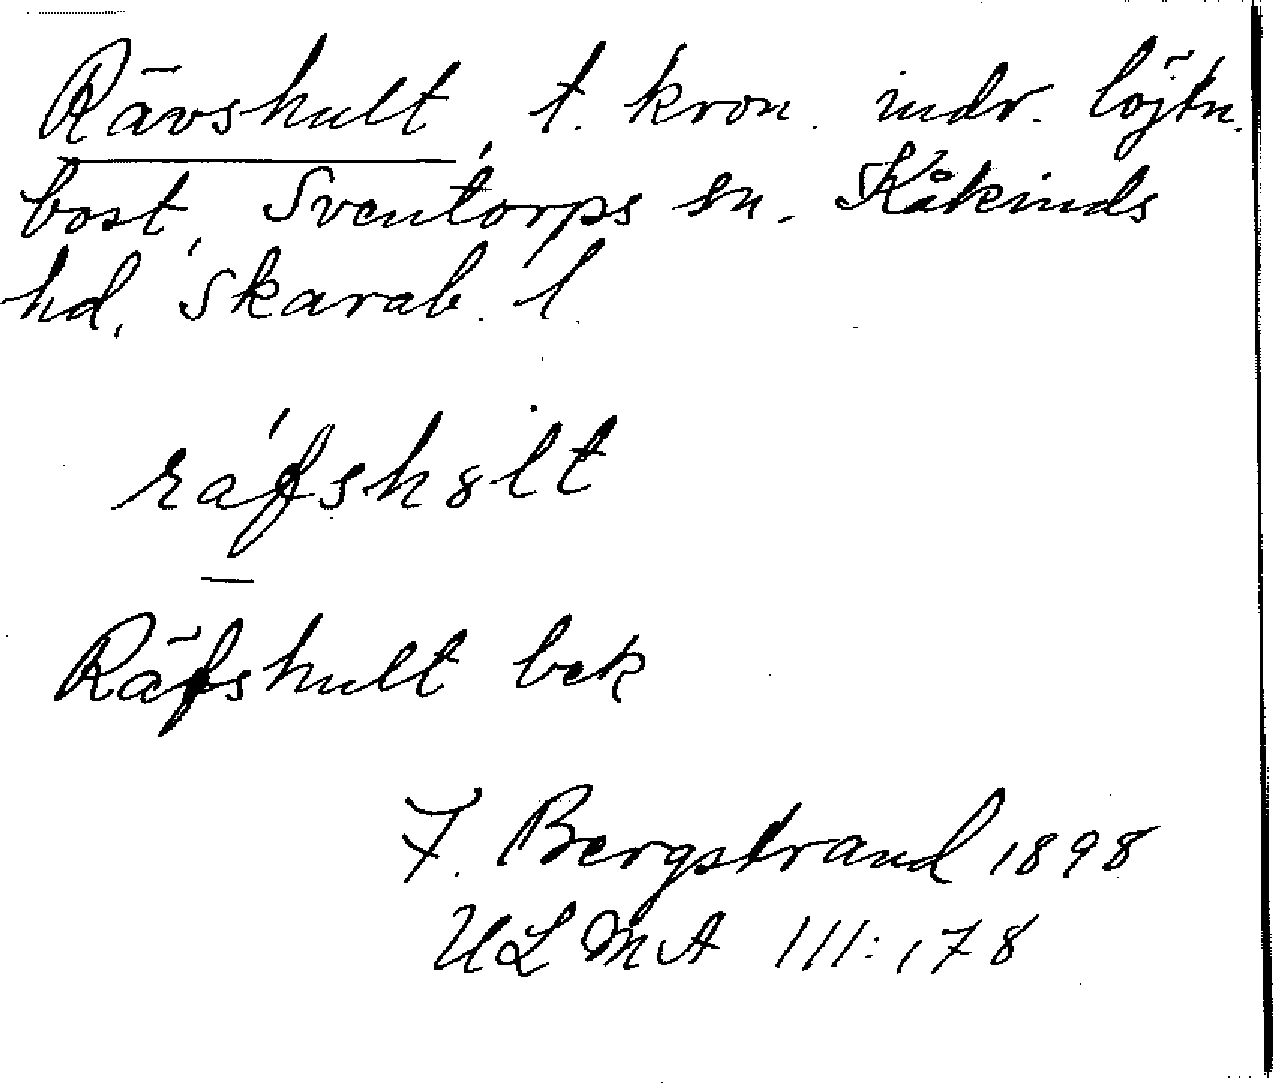 Rävshult, t. kron. indr. löjtn.
bost, Sventorps sn. Kåkinds
hd, Skarab. l.
ráfshult
Räfshult bek
F. Bergstrand 1898
ULMA 111:178